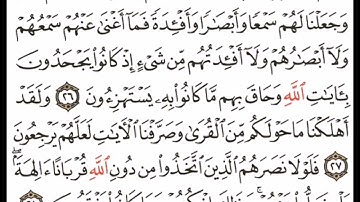 وَجَعَلْنَا لَهُمْ سَمْعًا وَأَبْصَٰرًا وَأَفْـِٔدَةً فَمَآ أَغْنَىٰ عَنْهُمْ سَمْعُهُمْ
وَلَآ أَبْصَٰرُهُمْ وَلَآ أَفْـِٔدَتُهُم مِّن شَىْءٍ إِذْ كَانُوا۟ يَجْحَدُونَ
بِـَٔايَٰتِ ٱللَّهِ وَحَاقَ بِهِم مَّا كَانُوا۟ بِهِۦ يَسْتَهْزِءُونَ ٢٦ وَلَقَدْ
أَهْلَكْنَا مَا حَوْلَكُم مِّنَ ٱلْقُرَىٰ وَصَرَّفْنَا ٱلْءَايَٰتِ لَعَلَّهُمْ يَرْجِعُونَ
٢٧ فَلَوْلَا نَصَرَهُمُ ٱلَّذِينَ ٱتَّخَذُوا۟ مِن دُونِ ٱللَّهِ قُرْبَانًا ءَالِهَةًۢ